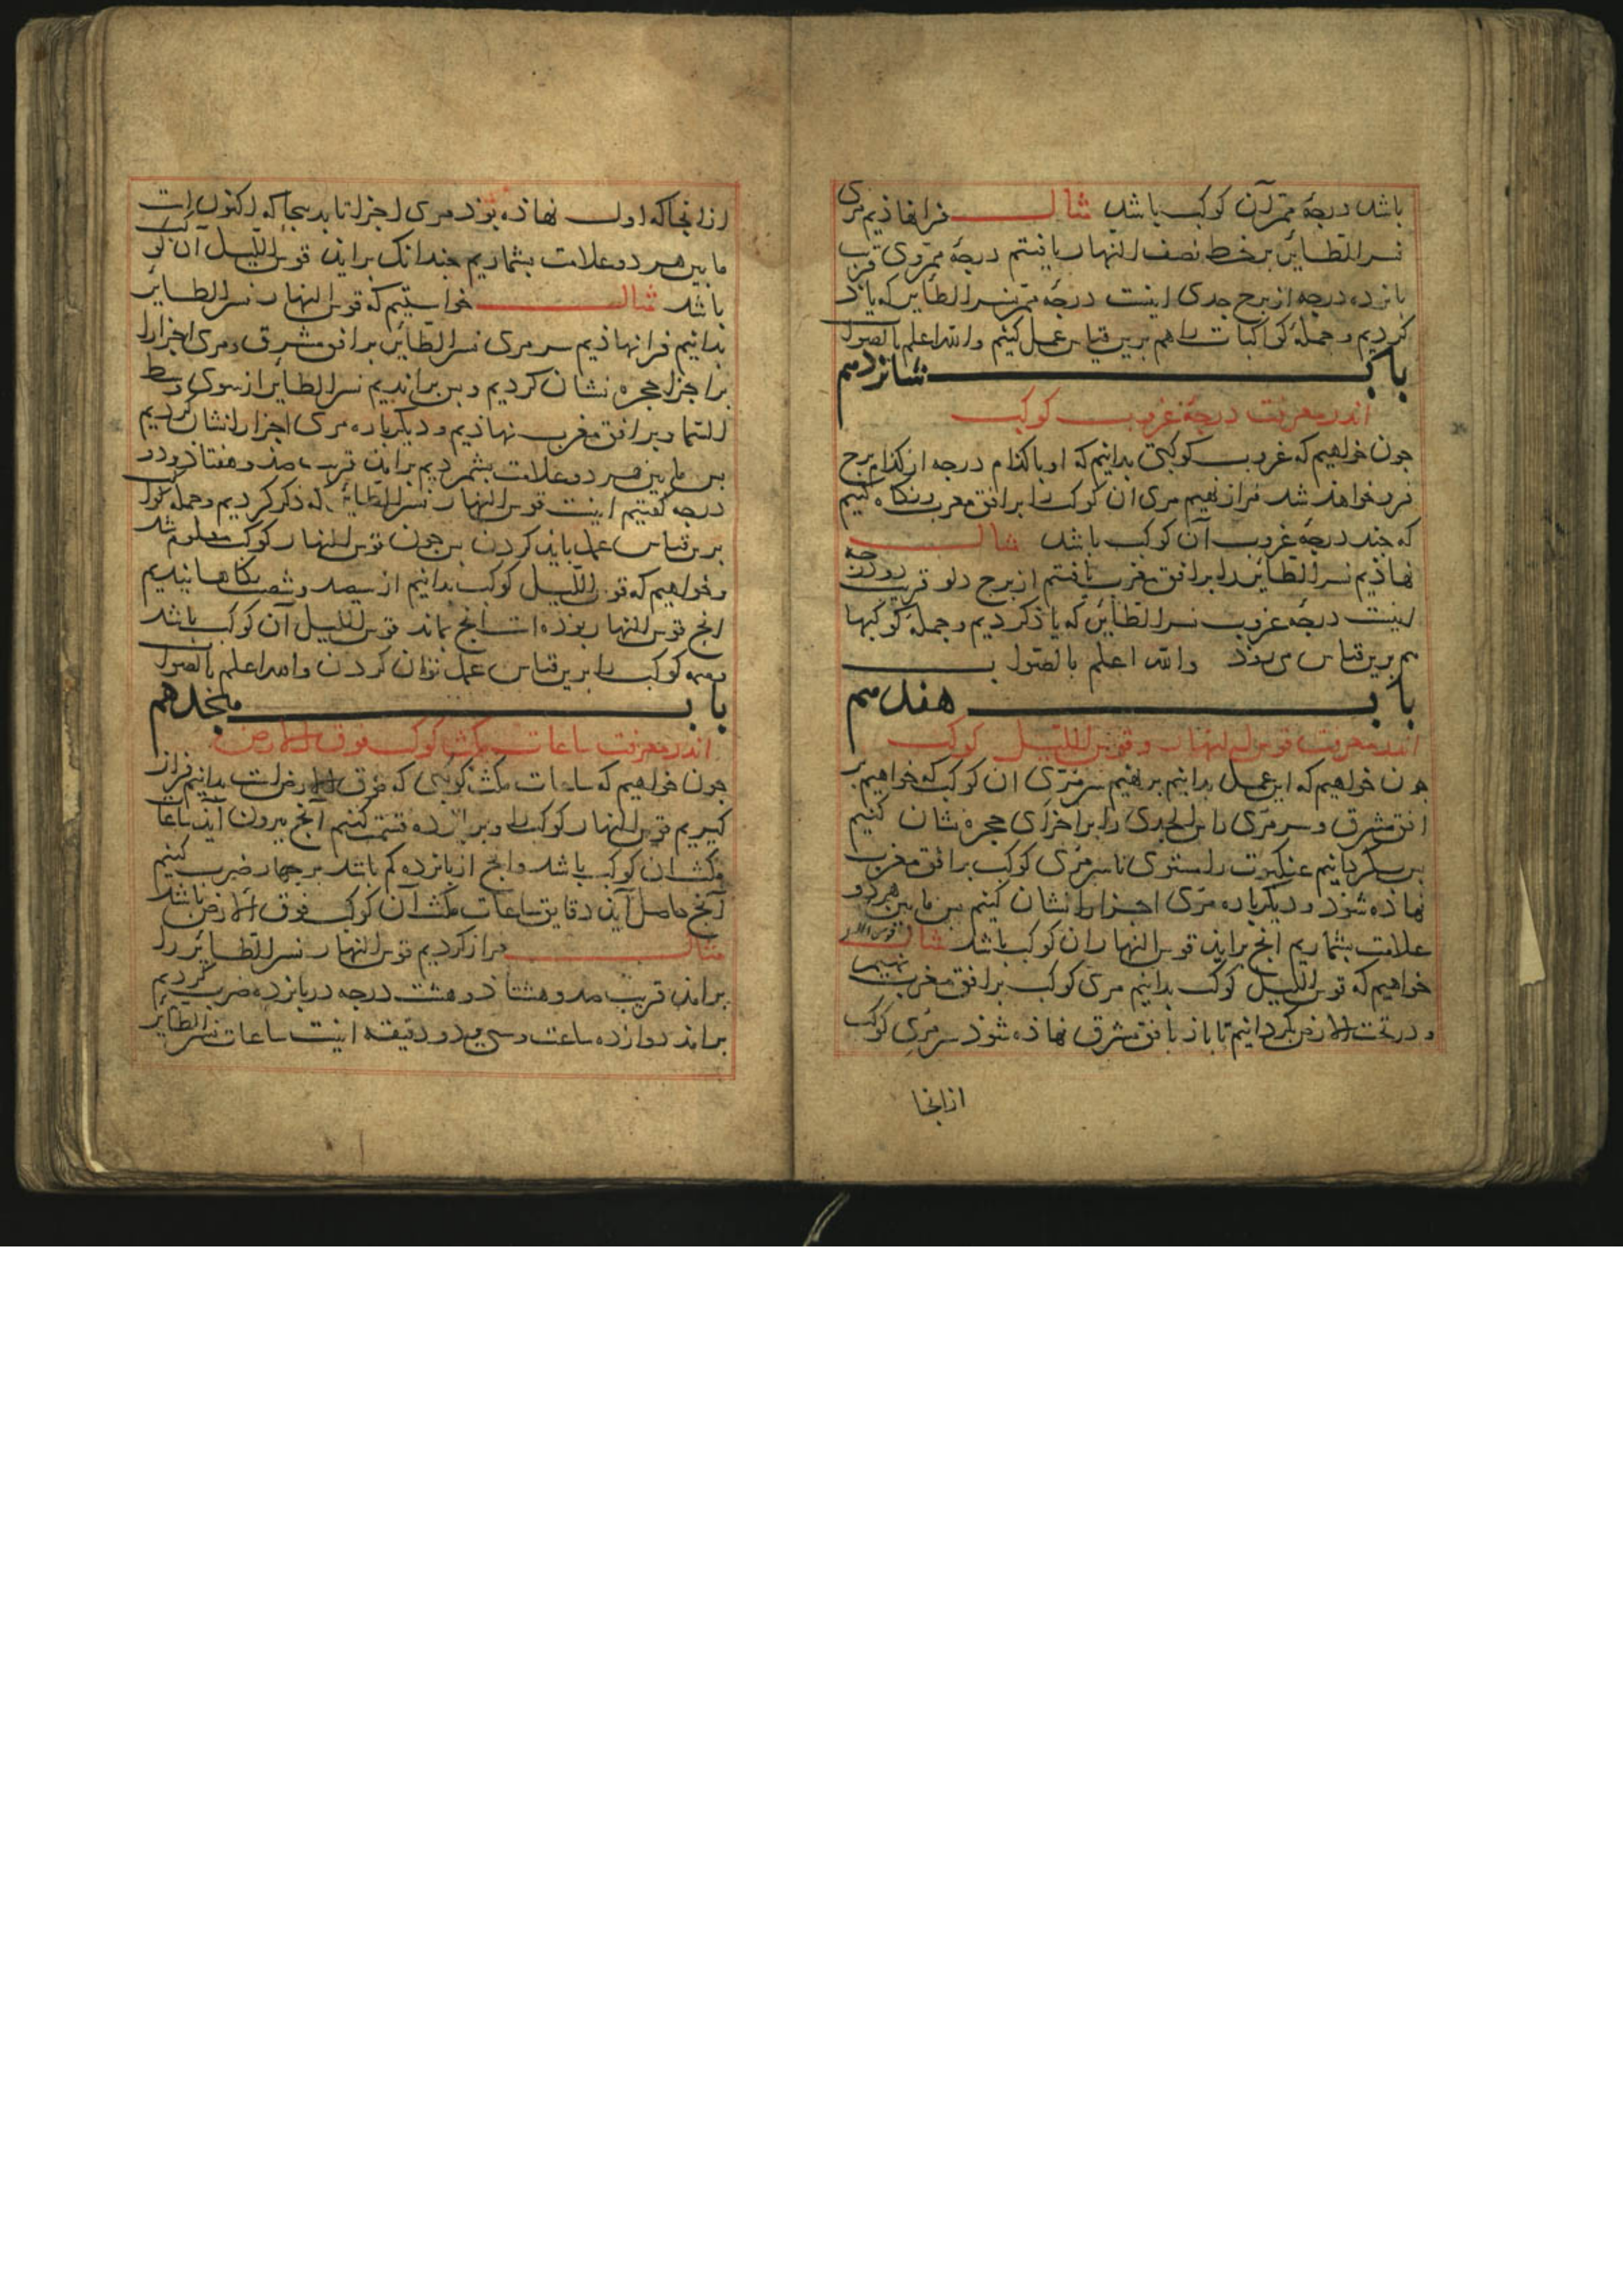 باشد درجهٔ ممر آن کوکب باشد مثال فرانهاذیم مری
نسر الطایر بر خط نصف النهار یافتیم درجهٔ ممر وی قرب
بانزده درجه از برج جدی اینست درجهٔ ممر نسر الطایر که یاذ
کردیم و جملهٔ کواکبات را هم برین قیاس عمل کنیم والله اعلم بالصواب
باب شانزدهم
اندر معرفت درجهٔ غروب کوکب
جون خواهیم که غروب کوکبی بدانیم که او باکذام درجه از کذام برج
فرو خواهذ شد فراز نهیم مری ان کوکب را بر افق مغرب و نکاه کنیم
که جند درجهٔ غروب آن کوکب باشد مثال
نهاذیم نسر الطایر را بر افق مغرب یافتیم از برج دلو قریب دو درجه
اینست درجهٔ غروب نسر الطایر که یاذ کردیم و جملهٔ کوکبها
هم برین قیاس می بوذ والله اعلم بالصواب
باب هفدهم
اندر معرفت قوس النهار و قوس اللیل کوکب
جون خواهیم که این عمل بدانیم برنهیم سر مری ان کوکب که خواهیم بر
افق مشرق و سر مری راس الجدی را بر اجزای حجره نشان کنیم
بس بکردانیم عنکبوت راستوی تا سر مری کوکب بر افق مغرب
نهاذه شوذ و دیکرباره مری اجزا را نشان کنیم بس ما بین هر دو
علامت بشماریم آنج براید قوس النهار ان کوکب باشد مثال
خواهیم که قوس اللیل کوکب بدانیم مری کوکب بر افق مغرب نهیم
و در تحت الارض بکردانیم تا باز بافق مشرق نهاذه شوذ سر مری کوکب
ازانجا
ازانجا که اول نهاذه بوذ مری اجزا تا بدینجا که اکنون است
ما بین هر دو علامت بشماریم جندانک براید قوس اللیل آن کوکب
باشد مثال خواستیم که قوس النهار نسر الطایر
بدانیم فرانهاذیم سر مری نسر الطایر بر افق مشرق و مری اجزا را
بر اجزا حجره نشان کردیم و بس براندیم نسر الطایر از سوی وسط
السما و بر افق مغرب نهاذیم و دیکرباره مری اجزا را نشان کردیم
بس ما بین هر دو علامت بشمردیم براید قریب صذ و هفتاذ و دو
درجه کفتیم اینست قوس النهار نسر الطایر که ذکر کردیم و جمله کواکب
برین قیاس عمل باید کردن بس جون قوس النهار کوکب معلوم شد
و خواهیم که قوس اللیل کوکب بدانیم از سیصد و شصت بکاهانیدیم
انج قوس النهار بوذه است انج بماند قوس اللیل آن کوکب باشد
و همه کوکب را برین قیاس عمل توان کردن والله اعلم بالصواب
باب هجدهم
اندر معرفت ساعات مکث کوکب فوق الارض
جون خواهیم که ساعات مکث کوکبی که فوق الارض است بدانیم فراز
کیریم قوس النهار کوکب را و بر پانزده قسمت کنیم آنج بیرون آید ساعات
مکث ان کوکب باشد وانج از بانزده کم باشد بر جهار ضرب کنیم
آنج حاصل آید دقایق ساعات مکث آن کوکب فوق الارض باشد
مثال فراز کردیم قوس النهار نسر الطایر را
برامد قریب صد و هشتاذ و هشت درجه در بانزده ضرب کردیم
برامد دوازده ساعت و سی و دو دقیقه اینست ساعات نسر الطایر